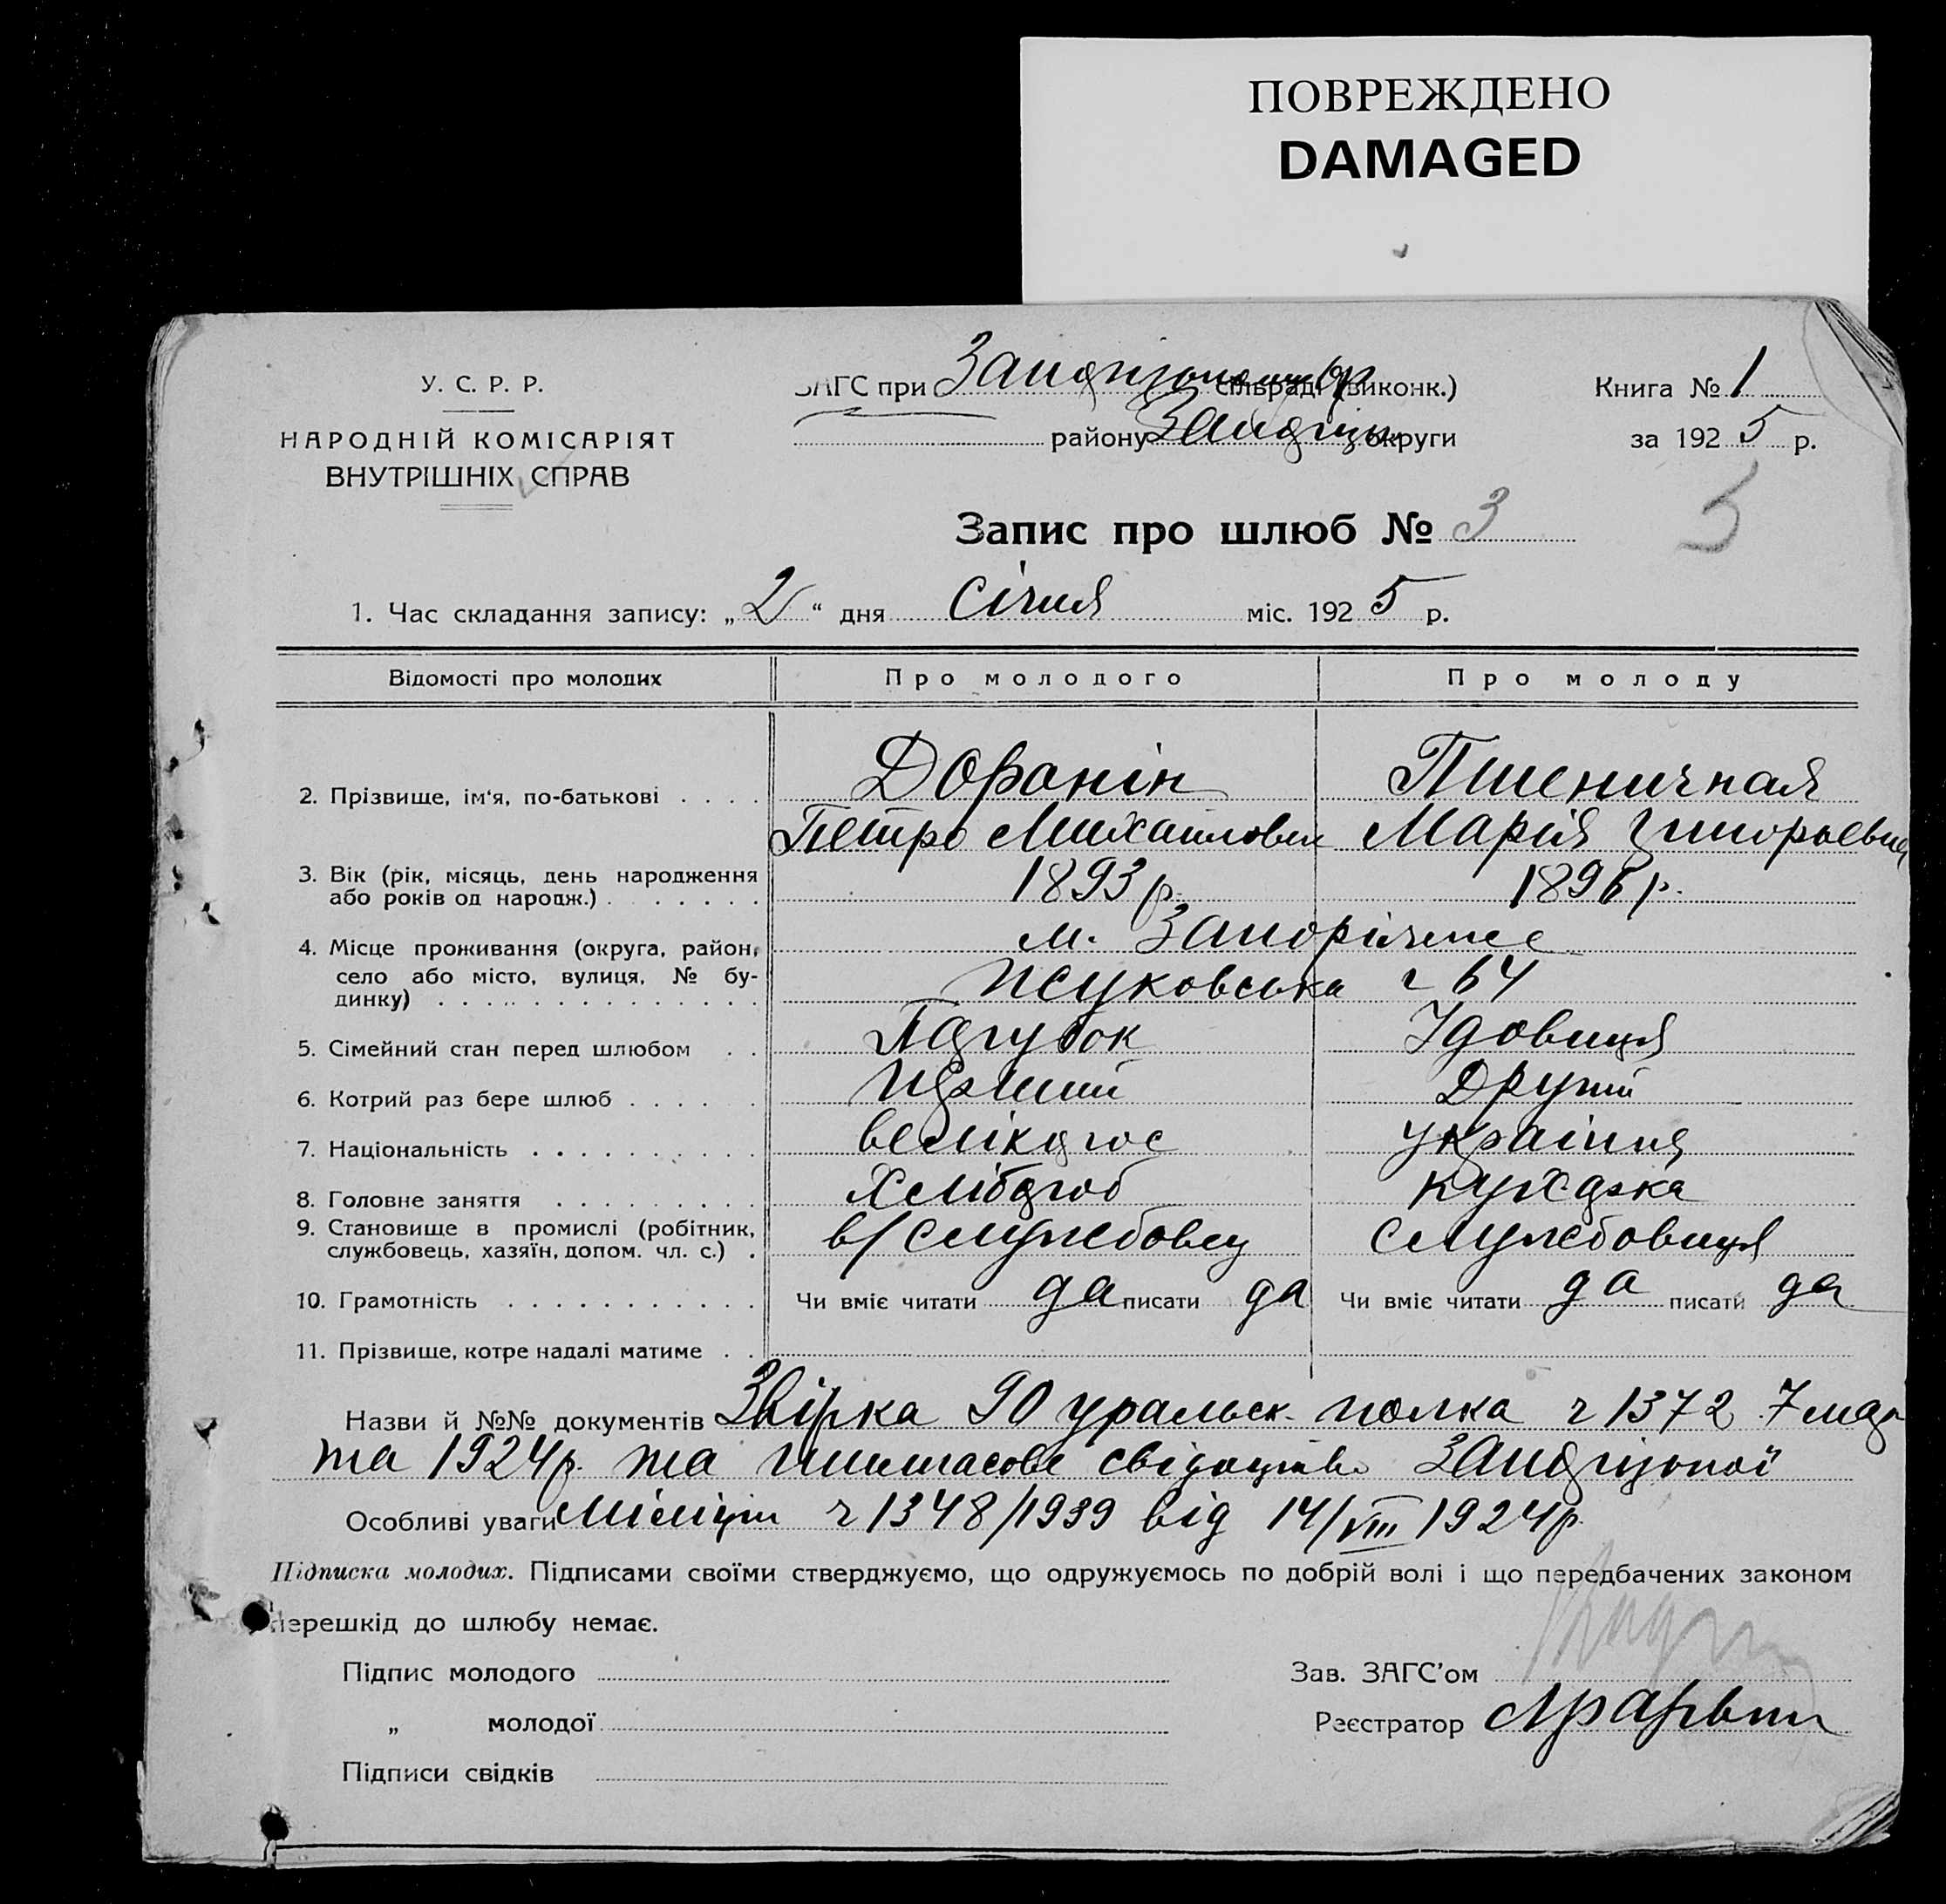 ПОВРЕЖДЕНО
DAMAGED
У. С. Р. Р.
НАРОДНІЙ КОМІСАРІЯТ
ВНУТРІШНІХ СПРАВ
ЗАГС при сільраді (виконк.)
району округи
Книга № 1
за 1925 р.
Запис про шлюб № 3
5
1. Час складання запису: „2“ дня січня міс. 1925 р.
Відомості про молодих Про молодого Про молоду
2. Прізвище, ім'я, по-батькові . . . . Доронін Пшеничная
Петро Михайлович Марія Григорьевна
3. Вік (рік, місяць, день народження
або років од народж.) . . . . . . . 1893 р. 1896 р.
4. Місце проживання (округа, район, м. Запоріжже
село або місто, вулиця, № бу-
динку) . . . . . . . . . . . . . . Жуковська ч 64
5. Сімейний стан перед шлюбом . . Парубок Удовиця
6. Котрий раз бере шлюб . . . . . . Перший Другий
7. Національність . . . . . . . . . . великорос українця
8. Головне заняття . . . . . . . . . Хлібороб кухарка
9. Становище в промислі (робітник,
службовець, хазяїн, допом. чл. с.) . в/службовец службовиця
10. Грамотність . . . . . . . . . . . Чи вміє читати да писати да Чи вміє читати да писати да
11. Прізвище, котре надалі матиме . .
Назви й №№ документів Звірка 90 уральск. полка ч 1372 7 мар
та 1924 р. та тимчасове свідоцтво
Особливі уваги Міліції ч 1348/1939 від 14/VIII 1924 р.
Підписка молодих. Підписами своїми стверджуємо, що одружуємось по добрій волі і що передбачених законом
перешкід до шлюбу немає.
Підпис молодого
„ молодої
Підписи свідків
Зав. ЗАГС'ом
Реєстратор